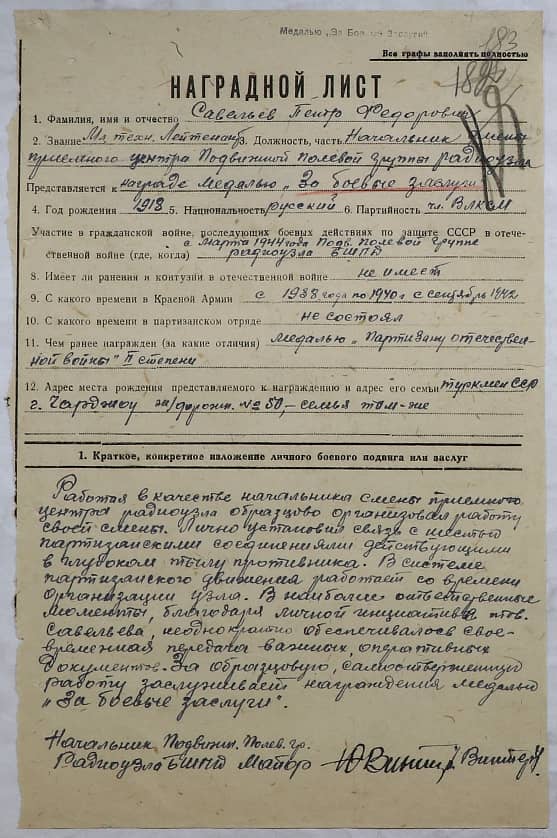 Медалью „За Боевые Заслуги“
183
Все графы заполнять полностью
НАГРАДНОЙ ЛИСТ
1. Фамилия, имя и отчество Савельев Петр Федорович
2. Звание Мл. техн. Лейтенант 3. Должность, часть Начальник смены
приемного центра Подвижной полевой группы радиоузла
Представляется к награде медалью „За боевые заслуги“
4. Год рождения 1918 5. Национальность русский 6. Партийность чл. ВЛКСМ
Участие в гражданской войне, последующих боевых действиях по защите СССР в отече-
с марта 1944 года Подв. Полевой Группе
ственной войне (где, когда) радиоузла БШПД
8. Имеет ли ранения и контузии в отечественной войне не имеет
9. С какого времени в Красной Армии с 1938 года по 1940 г с сентябрь 1942
10. С какого времени в партизанском отряде не состоял
11. Чем ранее награжден (за какие отличия) медалью „Партизану отечествен-
ной войны“ II степени
12. Адрес места рождения представляемого к награждению и адрес его семьи туркмен ССР
г. Чарджоу ж/дорожн. № 50,- семья там-же
1. Краткое, конкретное изложение личного боевого подвига или заслуг
Работая в качестве начальника смены приемного
центра радиоузла образцово организовал работу
своей смены. Лично установил связь с шестью
партизанскими соединениями действующими
в глубоком тылу противника. В системе
партизанского движения работает со времени
организации узла. В наиболее ответственные
моменты, благодаря личной инициативы тов.
Савельева, неоднократно обеспечивалось свое-
временная передача важных, оперативных
документов. За образцовую, самоотверженную
работу заслуживает награждения медалью
„За боевые заслуги“.
Начальник Подвижн. Полев. гр.
Радиоузла БШПД Майор Винтер